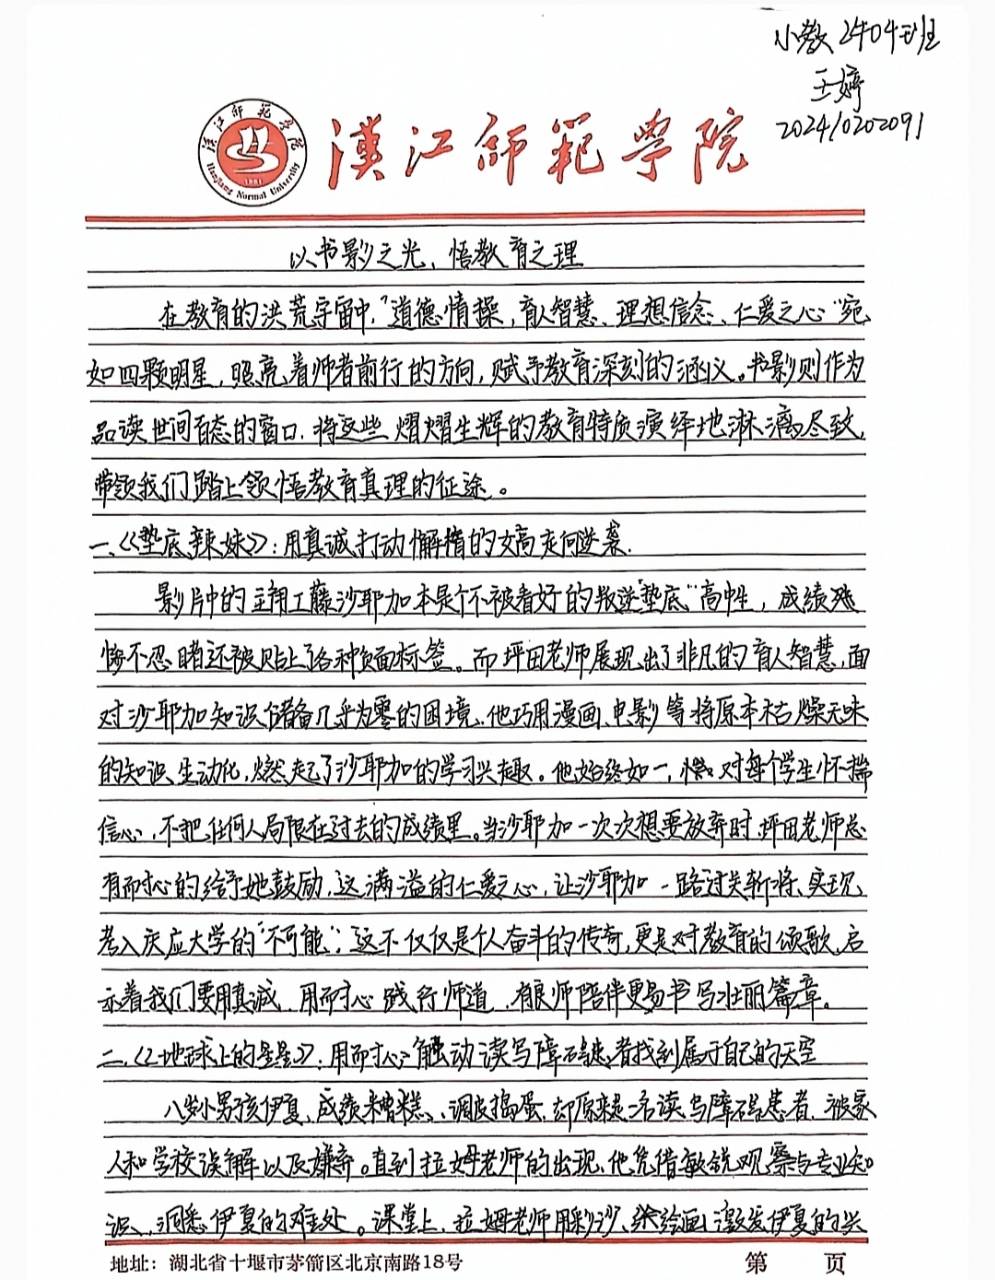 小教2404班
王婷
202410202091
汉江师范学院
Hanjiang Normal University
漢江師範學院
以书影之光、悟教育之理
在教育的洪荒宇宙中,“道德情操,育人智慧、理想信念、仁爱之心”宛
如四颗明星,照亮着师者前行的方向,赋予教育深刻的涵义。书影则作为
品读世间百态的窗口,将这些熠熠生辉的教育特质演绎地淋漓尽致,
带领我们踏上领悟教育真理的征途。
一、《垫底辣妹》:用真诚打动懈惰的女高走向逆袭.
影片中的主角工藤沙耶加本是个不被看好的叛逆“垫底”高中生,成绩残
惨不忍睹还被贴上了各种负面标签。而坪田老师展现出了非凡的育人智慧,面
对沙耶加知识储备几乎为零的困境,他巧用漫画、电影等将原本枯燥无味
的知识生动化,燃起了沙耶加的学习兴趣。他始终如一,对每个学生怀揣
信心,不把任何人局限在过去的成绩里。当沙耶加一次次想要放弃时,坪田老师总
有耐心的给予她鼓励,这满溢的仁爱之心,让沙耶加一路过关斩将、实现
考入庆应大学的“不可能”;这不仅仅是个人奋斗的传奇,更是对教育的颂歌,启
示着我们要用真诚、用耐心践行师道,有良师陪伴更易书写壮丽篇章。
二、《地球上的星星》:用耐心触动读写障碍患者找到属于自己的天空
八岁小男孩伊夏,成绩糟糕、调皮捣蛋,却原来是一名读写障碍患者,被家
人和学校误解以及嫌弃。直到拉姆老师的出现,他凭借敏锐观察与专业知
识、洞悉伊夏的难处。课堂上,拉姆老师用彩沙、绘画激发伊夏的兴
地址:湖北省十堰市茅箭区北京南路18号
第 页